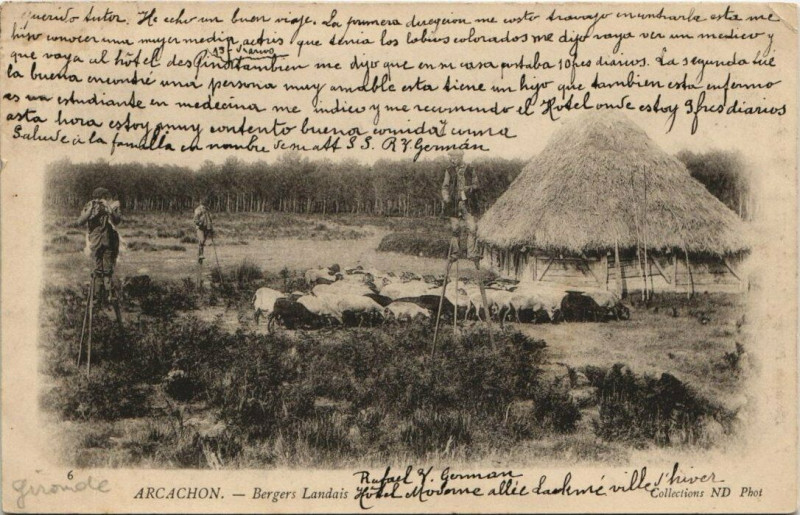 querido tutor. He echo un buen viaje. La primera direycion me costo travajo encontrarla esta me
hiso conocer una muger media actris que tenia los lobios colorados me dijo vaya ver un medico y
13 francos
que vaya al hôtel des tambien me dijo que en su casa 10 frs diarios. La segunda fué
la buena encontré una persona muy amable esta tiene un hijo que tambien esta enfermo
es un estudiante en medecina me indico y me recumendo el Hotel onde estoy 9 frcs diarios
asta hora estoy muy contento buena comida y cama
Salude à la familla en nombre de S.S. R Y Germán
6
Gironde
ARCACHON. — Bergers Landais
Rafael Y. German
Hôtel Moderne allée ville d'hiver
Collections ND Phot